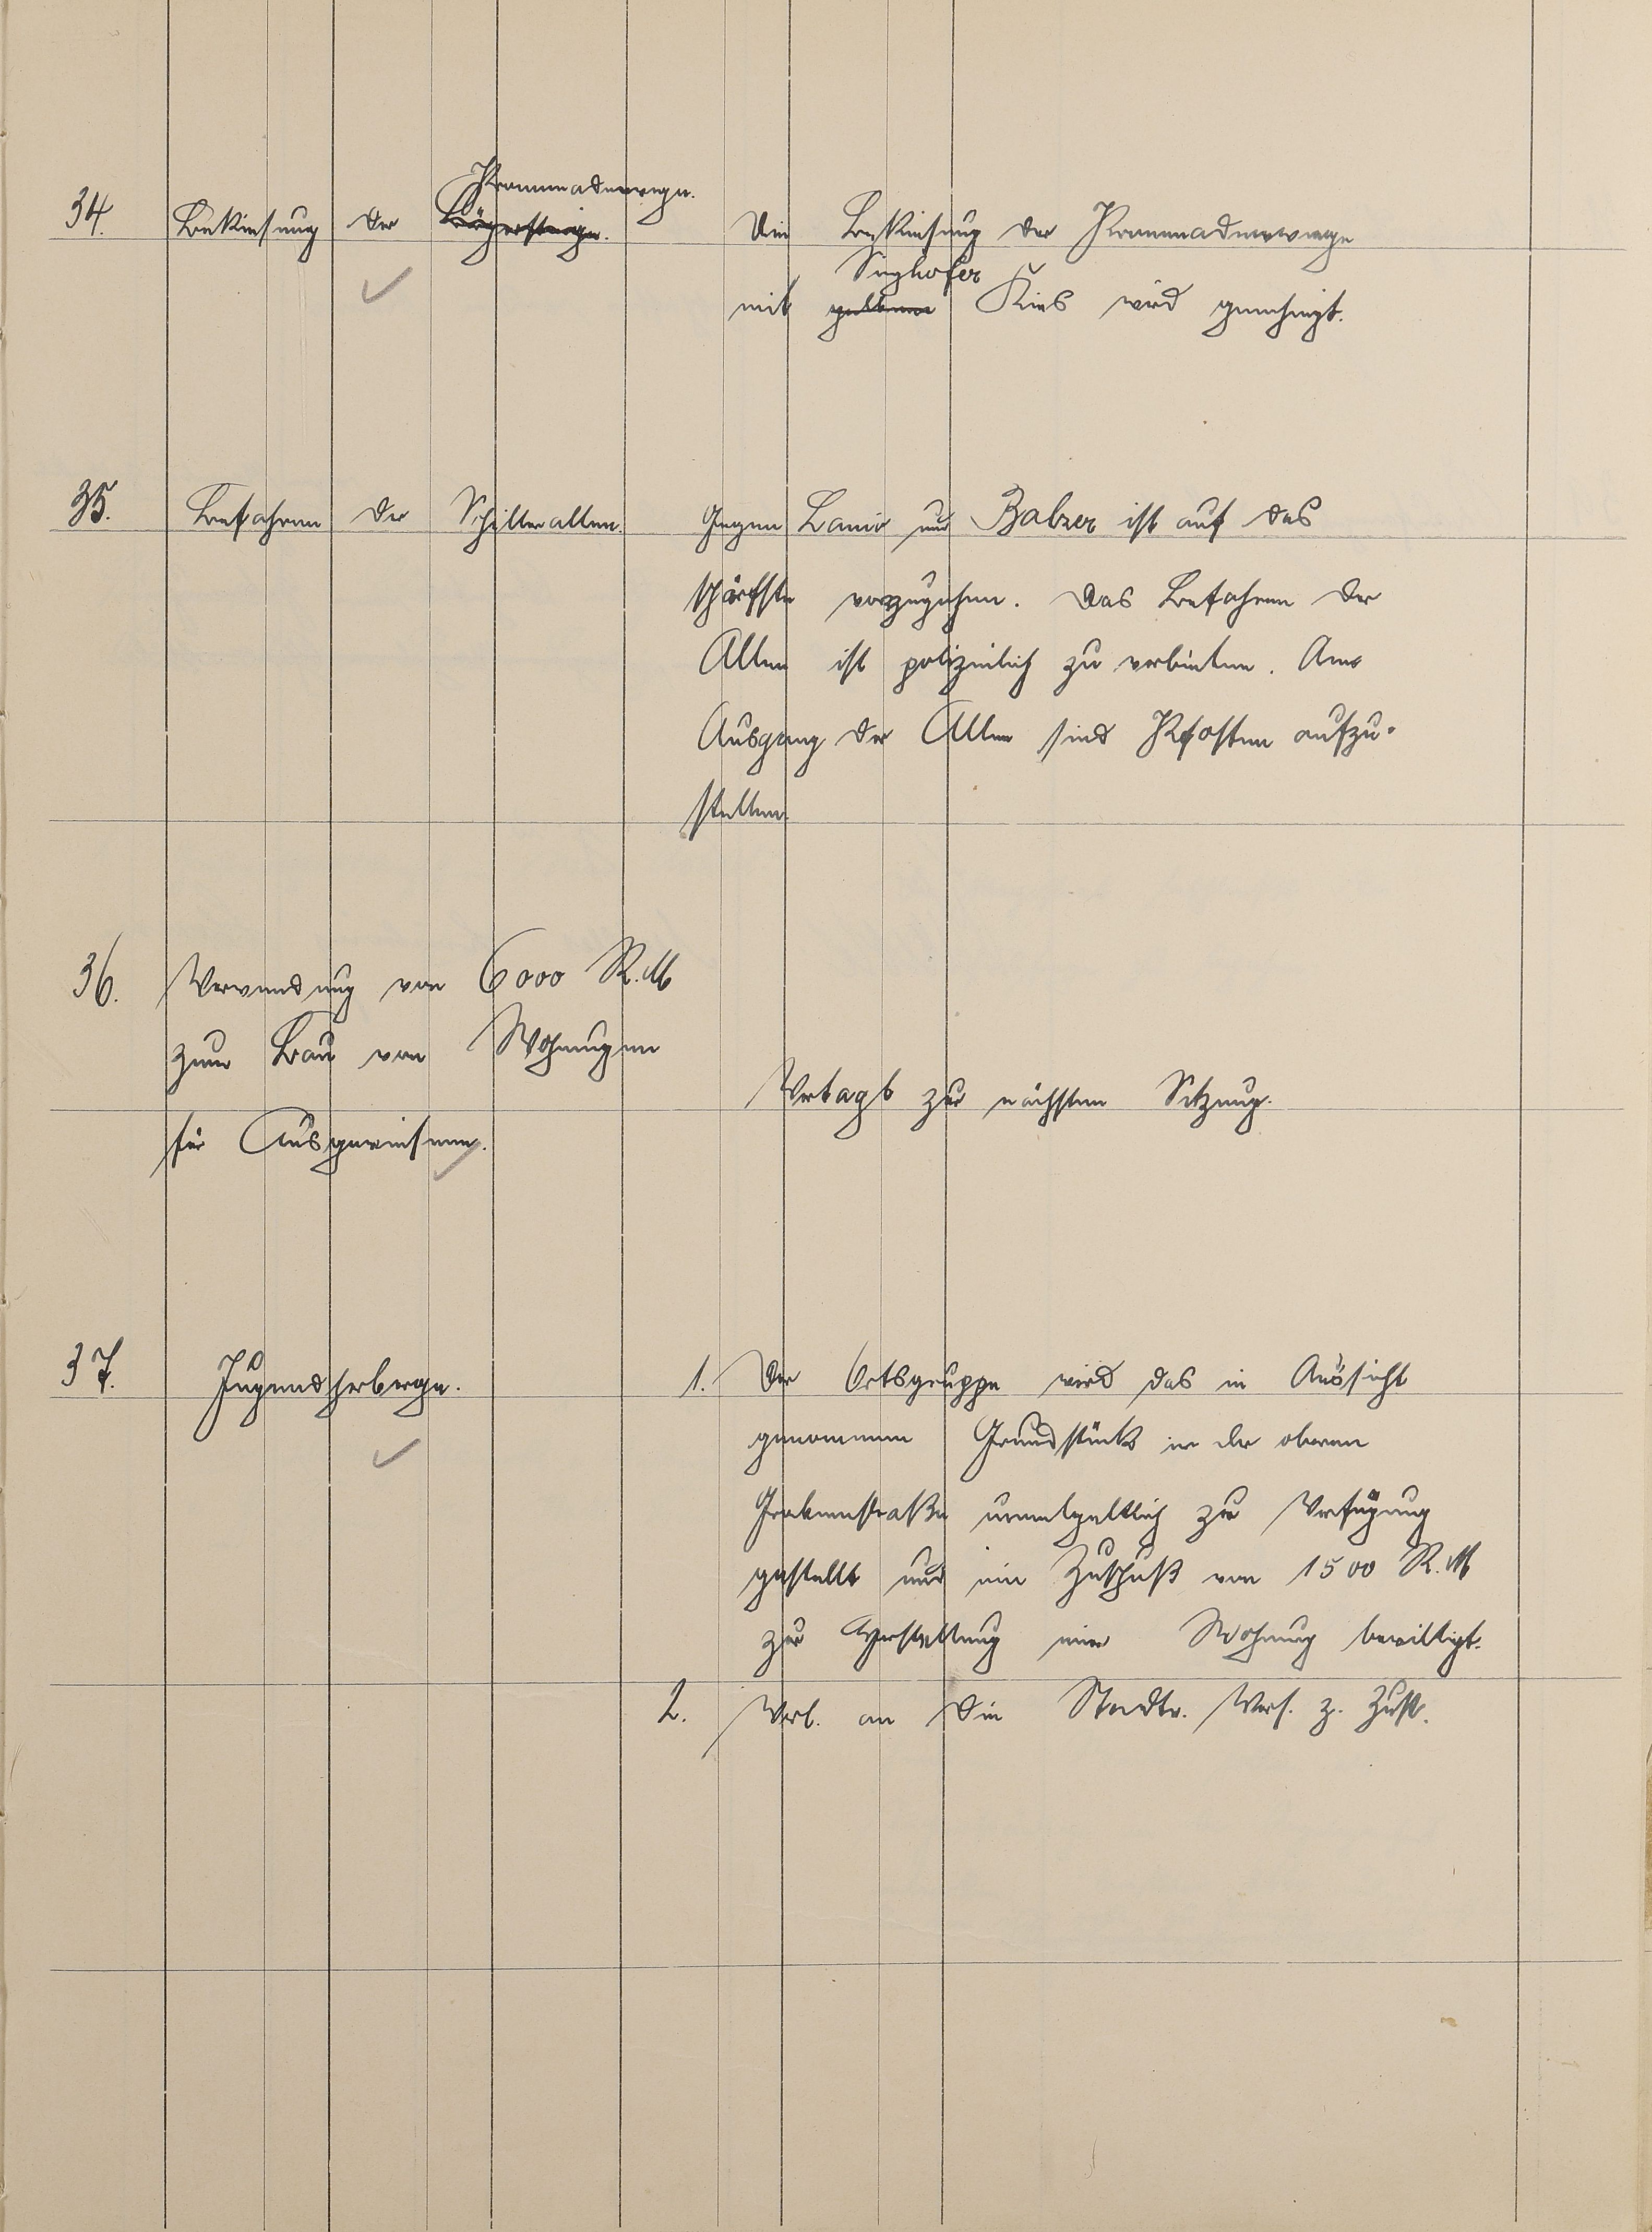 34. Bekiesung der Promenadenwege.
Bürgersteige.
Die Bekiesung der Promenadenwege
Sieghofer
mit gelbem Kies wird genehmigt.
35. Befahren der Schillerallee.
Gegen Lanio und Balzer ist auf das
schärfste vorzugehen. Das Befahren der
Allee ist polizeilich zu verbieten. Am
Ausgang der Allee sind Pfosten aufzu-
stellen.
36. Verwendung von 6000 R.M
zum Bau von Wohnungen
für Ausgewiesene.
Vertagt zur nächsten Sitzung.
37. Jugendherberge.
1. Der Ortsgruppe wird das in Aussicht
genommene Grundstück in der oberen
Grabenstraße unentgeltlich zur Verfügung
gestellt und ein Zuschuß von 1500 R.M
zur Herstellung einer Wohnung bewilligt.
2. Vorl. an die Stadtv. Vers. z. Zust.